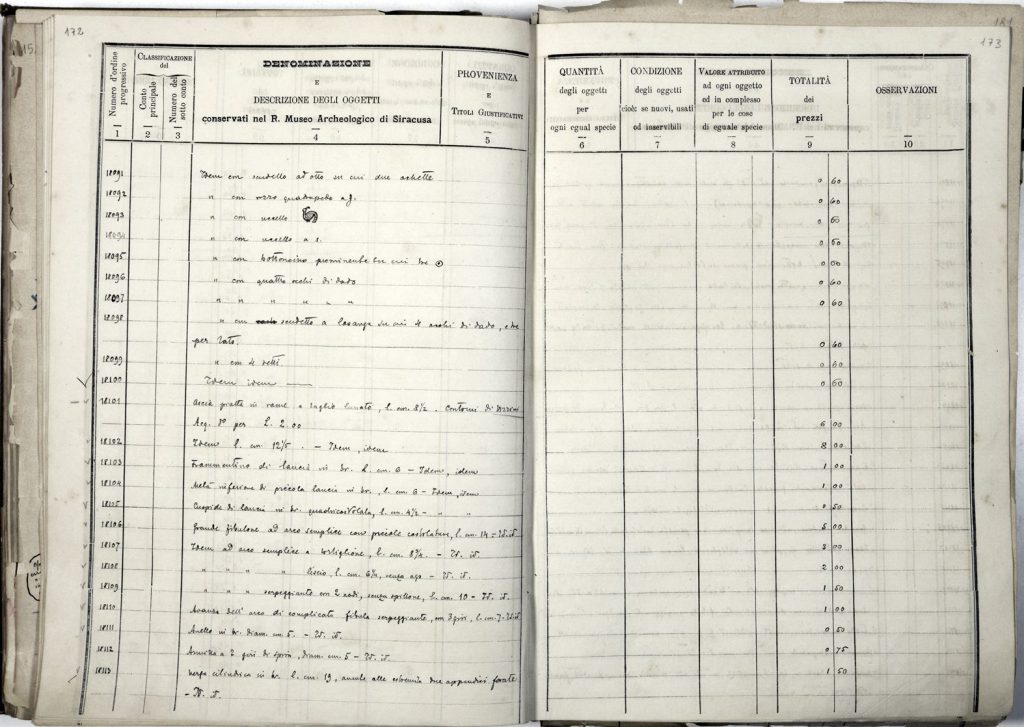 172
Numero d'ordine progressivo
CLASSIFICAZIONE del
Conto principale
Numero del sotto conto
DENOMINAZIONE
E
DESCRIZIONE DEGLI OGGETTI
conservati nel R. Museo Archeologico di Siracusa
PROVENIENZA
E
TITOLI GIUSTIFICATIVI
1 2 3 4 5
18091 Idem con scudetto ad otto su cui due ochette
18092 " con rozzo quadrupede a s.
18093 " con uccello
18094 " con uccello a s.
18095 " con bottoncino prominente su cui tre
18096 " con quattro occhi di dado
18097 " " " " " "
18098 " con scudetto a losanga su cui 4 occhi di dado, e
per lato.
18099 " con 4 detti.
18100 Idem idem
18101 Ascia piatta in rame a taglio lunato, l. cm. 8 1/2. Contorni di
Acq. per L. 2.00
18102 Idem l. cm. - Idem, idem
18103 Frammentino di lancia in br. l. cm. 6 - Idem, idem
18104 Metà inferiore di piccola lancia in br., l. cm. 6 - Idem, idem
18105 Cuspide di lancia in br. l. cm. 4 1/2 - " "
18106 Grande fibulone ad arco semplice con piccole costolature, l. cm. 14 - Id. id.
18107 Idem ad arco semplice a tortiglione, l. cm. - Id. id.
18108 " " " " liscio, l. cm. senza ago - Id. id.
18109 " " " serpeggiante con 2 nodi, senza spillone, l. cm. 10 - Id. id.
18110 Avanzo dell'arco di complicata fibula serpeggiante, con 3 giri, l. cm. 7 - Id. id.
18111 Anello in br. diam. cm. 5. - Id. id.
18112 Armilla a 2 giri di spira, diam. cm. 5 - Id. id.
18113 Verga cilindrica in br. l. cm. 19, avente alle estremità due appendici forate
- Id. id.
181
173
QUANTITÀ
degli oggetti
per
ogni egual specie
CONDIZIONE
degli oggetti
cioè: se nuovi, usati
od inservibili
VALORE ATTRIBUITO
ad ogni oggetto
ed in complesso
per le cose
di eguale specie
TOTALITÀ
dei
prezzi
OSSERVAZIONI
6 7 8 9 10
0 60
0 60
0 60
0 60
0 60
0 60
0 60
0 60
0 60
0 60
6 00
8 00
1 00
1 00
0 50
5 00
3 00
2 00
1 50
1 00
0 50
0 75
1 50